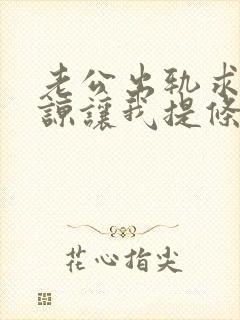 老公出轨求
谅让我提条
花心指尖